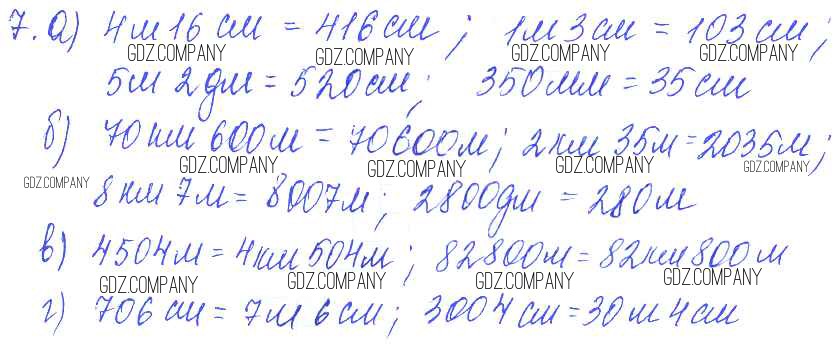 7. а) 4м 16 см = 416 см; 1м 3 см = 103 см;
GDZ.COMPANY GDZ.COMPANY GDZ.COMPANY GDZ.COMPANY
5м 2дм = 520 см; 350 мм = 35 см
б) 70 км 600 м = 70600 м; 2 км 35 м = 2035 м;
GDZ.COMPANY GDZ.COMPANY GDZ.COMPANY GDZ.COMPANY
GDZ.COMPANY
8 км 7 м = 8007 м; 2800 дм = 280 м
в) 4504 м = 4 км 504 м; 82800 м = 82 км 800 м
GDZ.COMPANY GDZ.COMPANY GDZ.COMPANY GDZ.COMPANY
г) 706 см = 7 м 6 см; 3004 см = 30 м 4 см